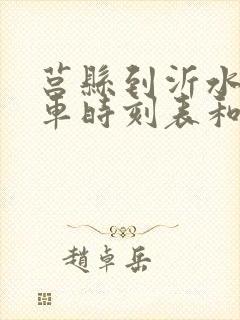 莒縣到沂水
車時刻表和
趙卓岳